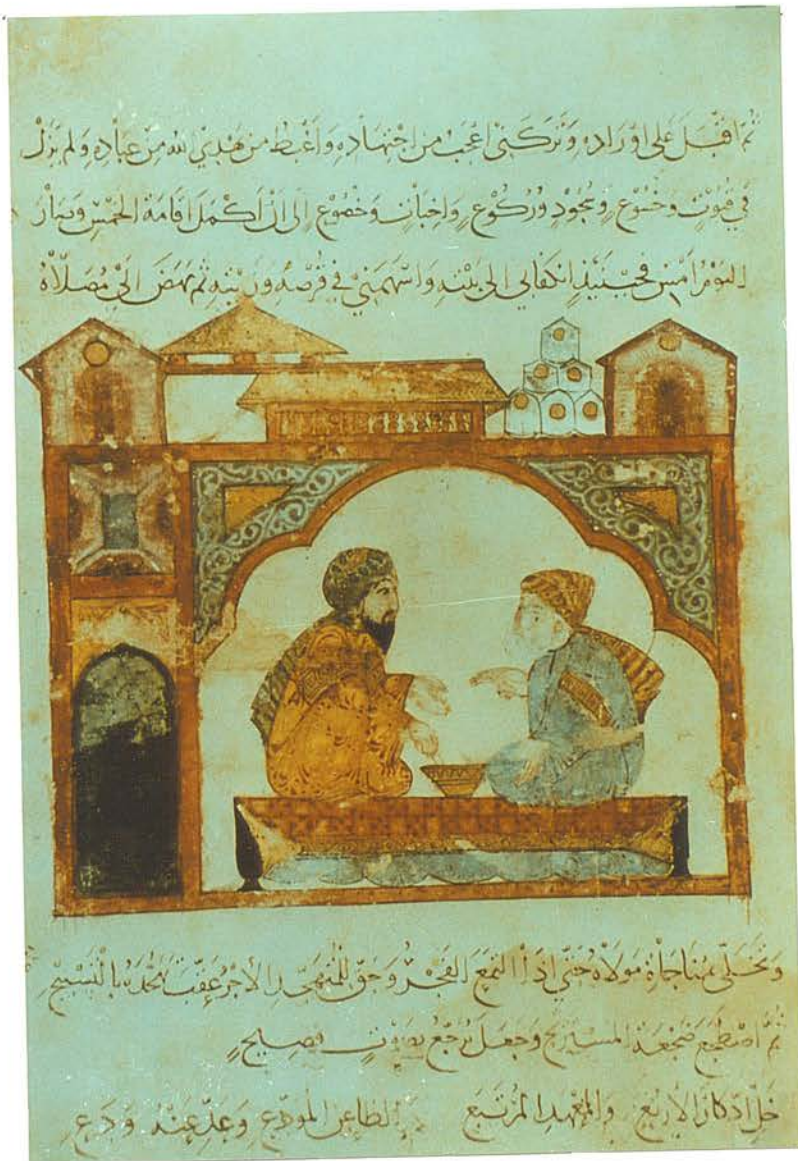 ثم اقبل على اوراده وتركني اعجب من اجتهاده واغبط من يهدي الله من عباده ولم يزل
في قنوت وخشوع وسجود وركوع واخبات وخضوع الى ان اكمل اقامة الخمس وصار
اليوم امس فحينئذ انكفا بي الى بيته واسهمني في قرصه وزيته ثم نهض الى مصلاه
وتخلى بمناجاة مولاه حتى اذا التمع الفجر وحق للمتهجد الاجر عقب تهجده بالتسبيح
ثم اضطجع ضجعة المستريح وجعل يرجع بصوت فصيح
خل ادكار الاربع والمعهد المرتبع
الظاعن المودع وعد عنه ودع